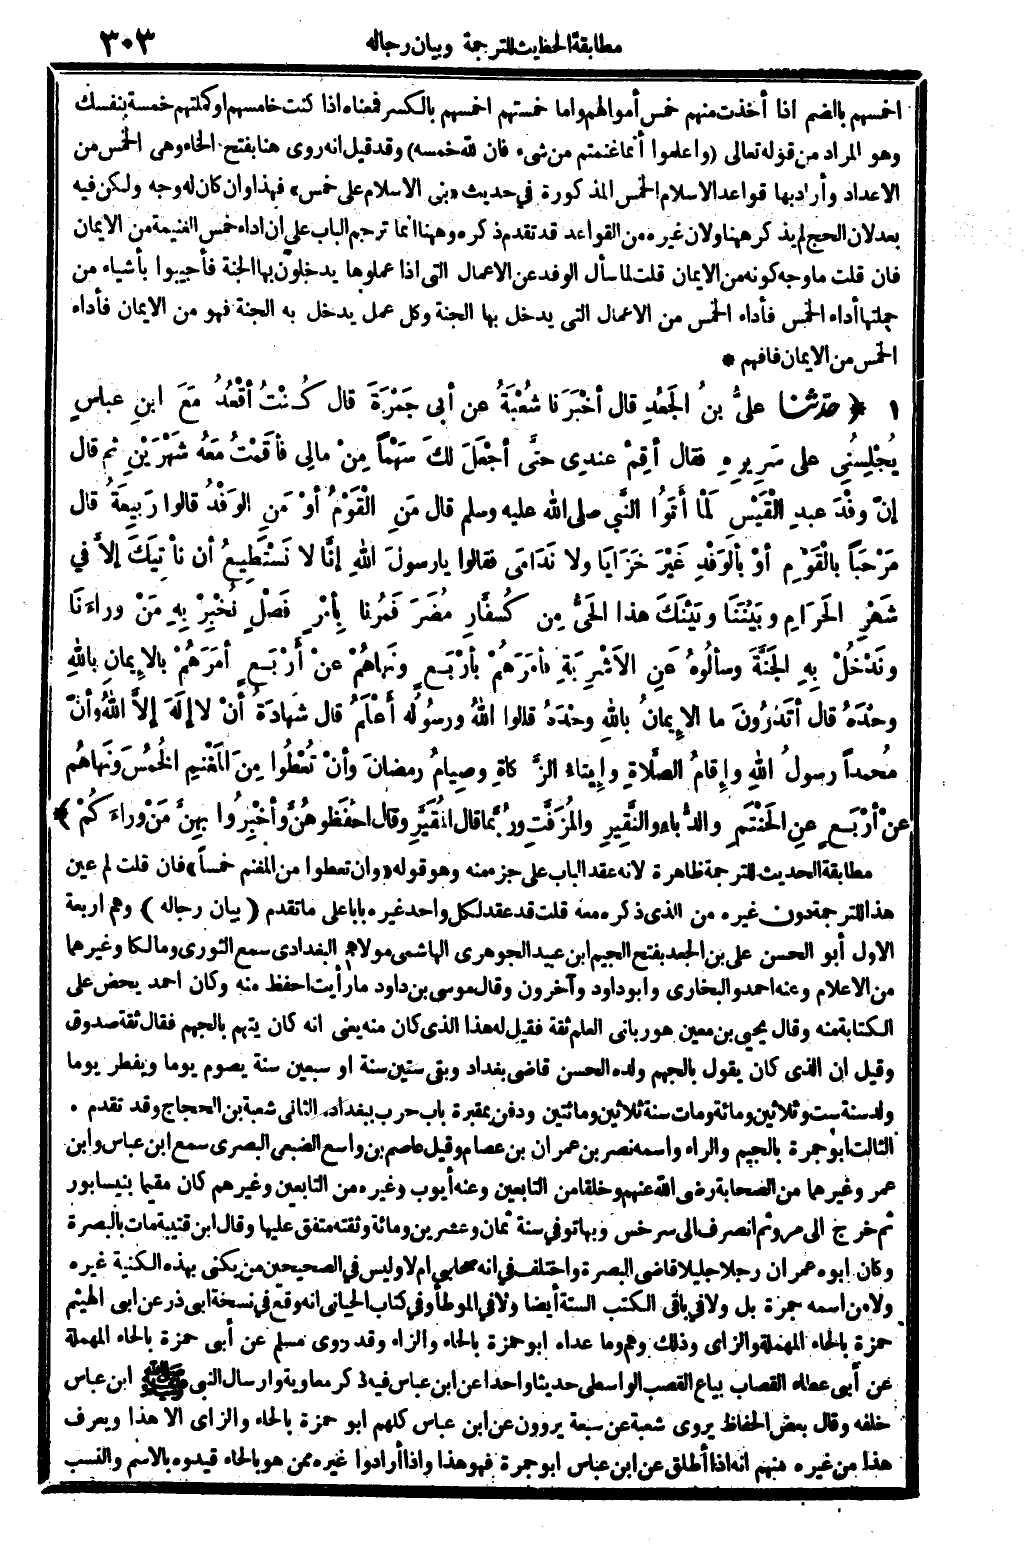 مطابقة الحديث للترجمة وبيان رجاله ٣٠٣
اخمسهم بالضم اذا أخذت منهم خمس أموالهم واما خمستهم اخمسهم بالكسر فمعناه اذا كنت خامسهم او كملتهم خمسة بنفسك
وهو المراد من قوله تعالى (واعلموا أنما غنمتم من شىء فان لله خمسه) وقد قيل انه روى هنا بفتح الخاء وهى الخمس من
الاعداد وأراد بها قواعد الاسلام الخمس المذكورة في حديث «بنى الاسلام على خمس» فهذا وان كان له وجه ولكن فيه
بعد لان الحج لم يذكر ههنا ولان غيره من القواعد قد تقدم ذكره وههنا انما ترجم الباب على ان اداء خمس الغنيمة من الايمان
فان قلت ما وجه كونه من الايمان قلت لما سأل الوفد عن الاعمال التى اذا عملوها يدخلون بها الجنة فأجيبوا بأشياء من
جملتها أداء الخمس فأداء الخمس من الاعمال التى يدخل بها الجنة وكل عمل يدخل به الجنة فهو من الايمان فأداء
الخمس من الايمان فافهم *
١ ﴿ حدثنا علىُّ بنُ الجَعْدِ قال أخْبَرَنا شُعْبَةُ عن أبى جَمْرَةَ قال كُنْتُ أقْعُدُ مَعَ ابنِ عباسٍ
يُجْلِسُنِي على سَرِيرِهِ فقال أقِمْ عندِى حتَّى أجْعَلَ لكَ سَهْمًا مِنْ مالِى فأقَمْتُ مَعَهُ شَهْرَيْنِ ثم قال
إنّ وَفْدَ عبدِ القَيْسِ لَمّا أتَوُا النَّبي صلى الله عليه وسلم قال مَنِ القْوْمُ أوْ مَنِ الوَفْدُ قالوا رَبِيعَةُ قال
مَرْحَبًا بالْقَوْمِ أوْ بألوَفْدِ غَيْرَ خَزَايَا ولا نَدَامَى فقالوا يارسولَ اللهِ إنَّا لا نَسْتَطِيعُ أن نأْتِيَكَ إلاَّ في
شَهْرِ الحَرَامِ وبَيْنَنَا وبَيْنَكَ هذا الحَىُّ مِن كُفَّارِ مُضَرَ فَمُرْنا بِأمْرٍ فَصْلٍ نُخْبِرْ بِهِ مَنْ وراءَنَا
ونَدْخُلْ بِهِ الجَنَّةَ وسألُوهُ عَنِ الاشْرِبَةِ فأمَرَهُمْ بأرْبَعٍ ونَهاهُمْ عنْ أَرْبَعٍ أمَرَهُمْ بالإِيمانِ باللهِ
وحْدَهُ قال أتَدْرُونَ ما الإِيمانُ باللهِ وحْدَهُ قالوا اللهُ ورسولُه أعْلَمُ قال شهادَةُ أنْ لا إلَهَ إلاَّ اللهُ وأنّ
مُحمداً رسولُ اللهِ وإقامُ الصَّلاةِ وإيتاءُ الزَّكاةِ وصِيامُ رمضانَ وأنْ تُعْطُوا مِنَ المَغْنمِ الخُمُسَ ونَهاهُم
عنْ أرْبَعٍ عنِ الحَنْتَمِ والدُّبَّاءِ والنَّقِيرِ والمُزَفَّتِ ورُبَّما قال المُقَيَّرِ وقال احْفَظوهُنَّ وأخْبِرُوا بهنَّ مَنْ وراءَكُمْ ﴾
مطابقة الحديث للترجمة ظاهرة لانه عقد الباب على جزء منه وهو قوله «وان تعطوا من المغنم خمساً» فان قلت لم عين
هذا للترجمة دون غيره من الذى ذكره معه قلت قد عقد لكل واحد غيره بابا على ما تقدم ( بيان رجاله ) وهم اربعة
الاول أبو الحسن على بن الجعد بفتح الجيم ابن عبيد الجوهرى الهاشمى مولاهم البغدادى سمع الثورى ومالكا وغيرهما
من الاعلام وعنه احمد والبخارى وابو داود وآخرون وقال موسى بن داود ما رأيت احفظ منه وكان احمد يحض على
الكتابة منه وقال يحيى بن معين هو ربانى العلم ثقة فقيل له هذا الذى كان منه يعنى انه كان يتهم بالجهم فقال ثقة صدوق
وقيل ان الذى كان يقول بالجهم ولده الحسن قاضى بغداد وبقى ستين سنة او سبعين سنة يصوم يوما ويفطر يوما
ولد سنة ست وثلاثين ومائة ومات سنة ثلاثين ومائتين ودفن بمقبرة باب حرب ببغداد. الثانى شعبة بن الحجاج وقد تقدم .
الثالث ابو جمرة بالجيم والراء واسمه نصر بن عمران بن عصام وقيل عاصم بن واسع الضبعى البصرى سمع ابن عباس وابن
عمر وغيرهما من الصحابة رضى الله عنهم وخلقا من التابعين وعنه أيوب وغيره من التابعين وغيرهم كان مقيما بنيسابور
ثم خرج الى مرو ثم انصرف الى سرخس وبها توفي سنة ثمان وعشرين ومائة وثقته متفق عليها وقال ابن قتيبة مات بالبصرة
وكان ابوه عمران رجلا جليلا قاضى البصرة واختلف في انه صحابى ام لا وليس في الصحيحين من يكنى بهذه الكنية غيره
ولا من اسمه جمرة بل ولا في باقى الكتب الستة أيضا ولا في الموطأ وفي كتاب الجيانى انه وقع في نسخة ابى ذر عن ابى الهيثم
حمزة بالحاء المهملة والزاى وذلك وهم وما عداه ابو حمزة بالحاء والزاء وقد روى مسلم عن أبى حمزة بالحاء المهملة
عن أبى عطاء القصاب بياع القصب الواسطى حديثا واحدا عن ابن عباس فيه ذكر معاوية وارسال النبى ﷺ ابن عباس
خلفه وقال بعض الحفاظ يروى شعبة عن سبعة يروون عن ابن عباس كلهم ابو حمزة بالحاء والزاى الا هذا ويعرف
هذا من غيره منهم انه اذا أطلق عن ابن عباس ابو جمرة فهو هذا واذا أرادوا غيره ممن هو بالحاء قيدوه بالاسم والنسب